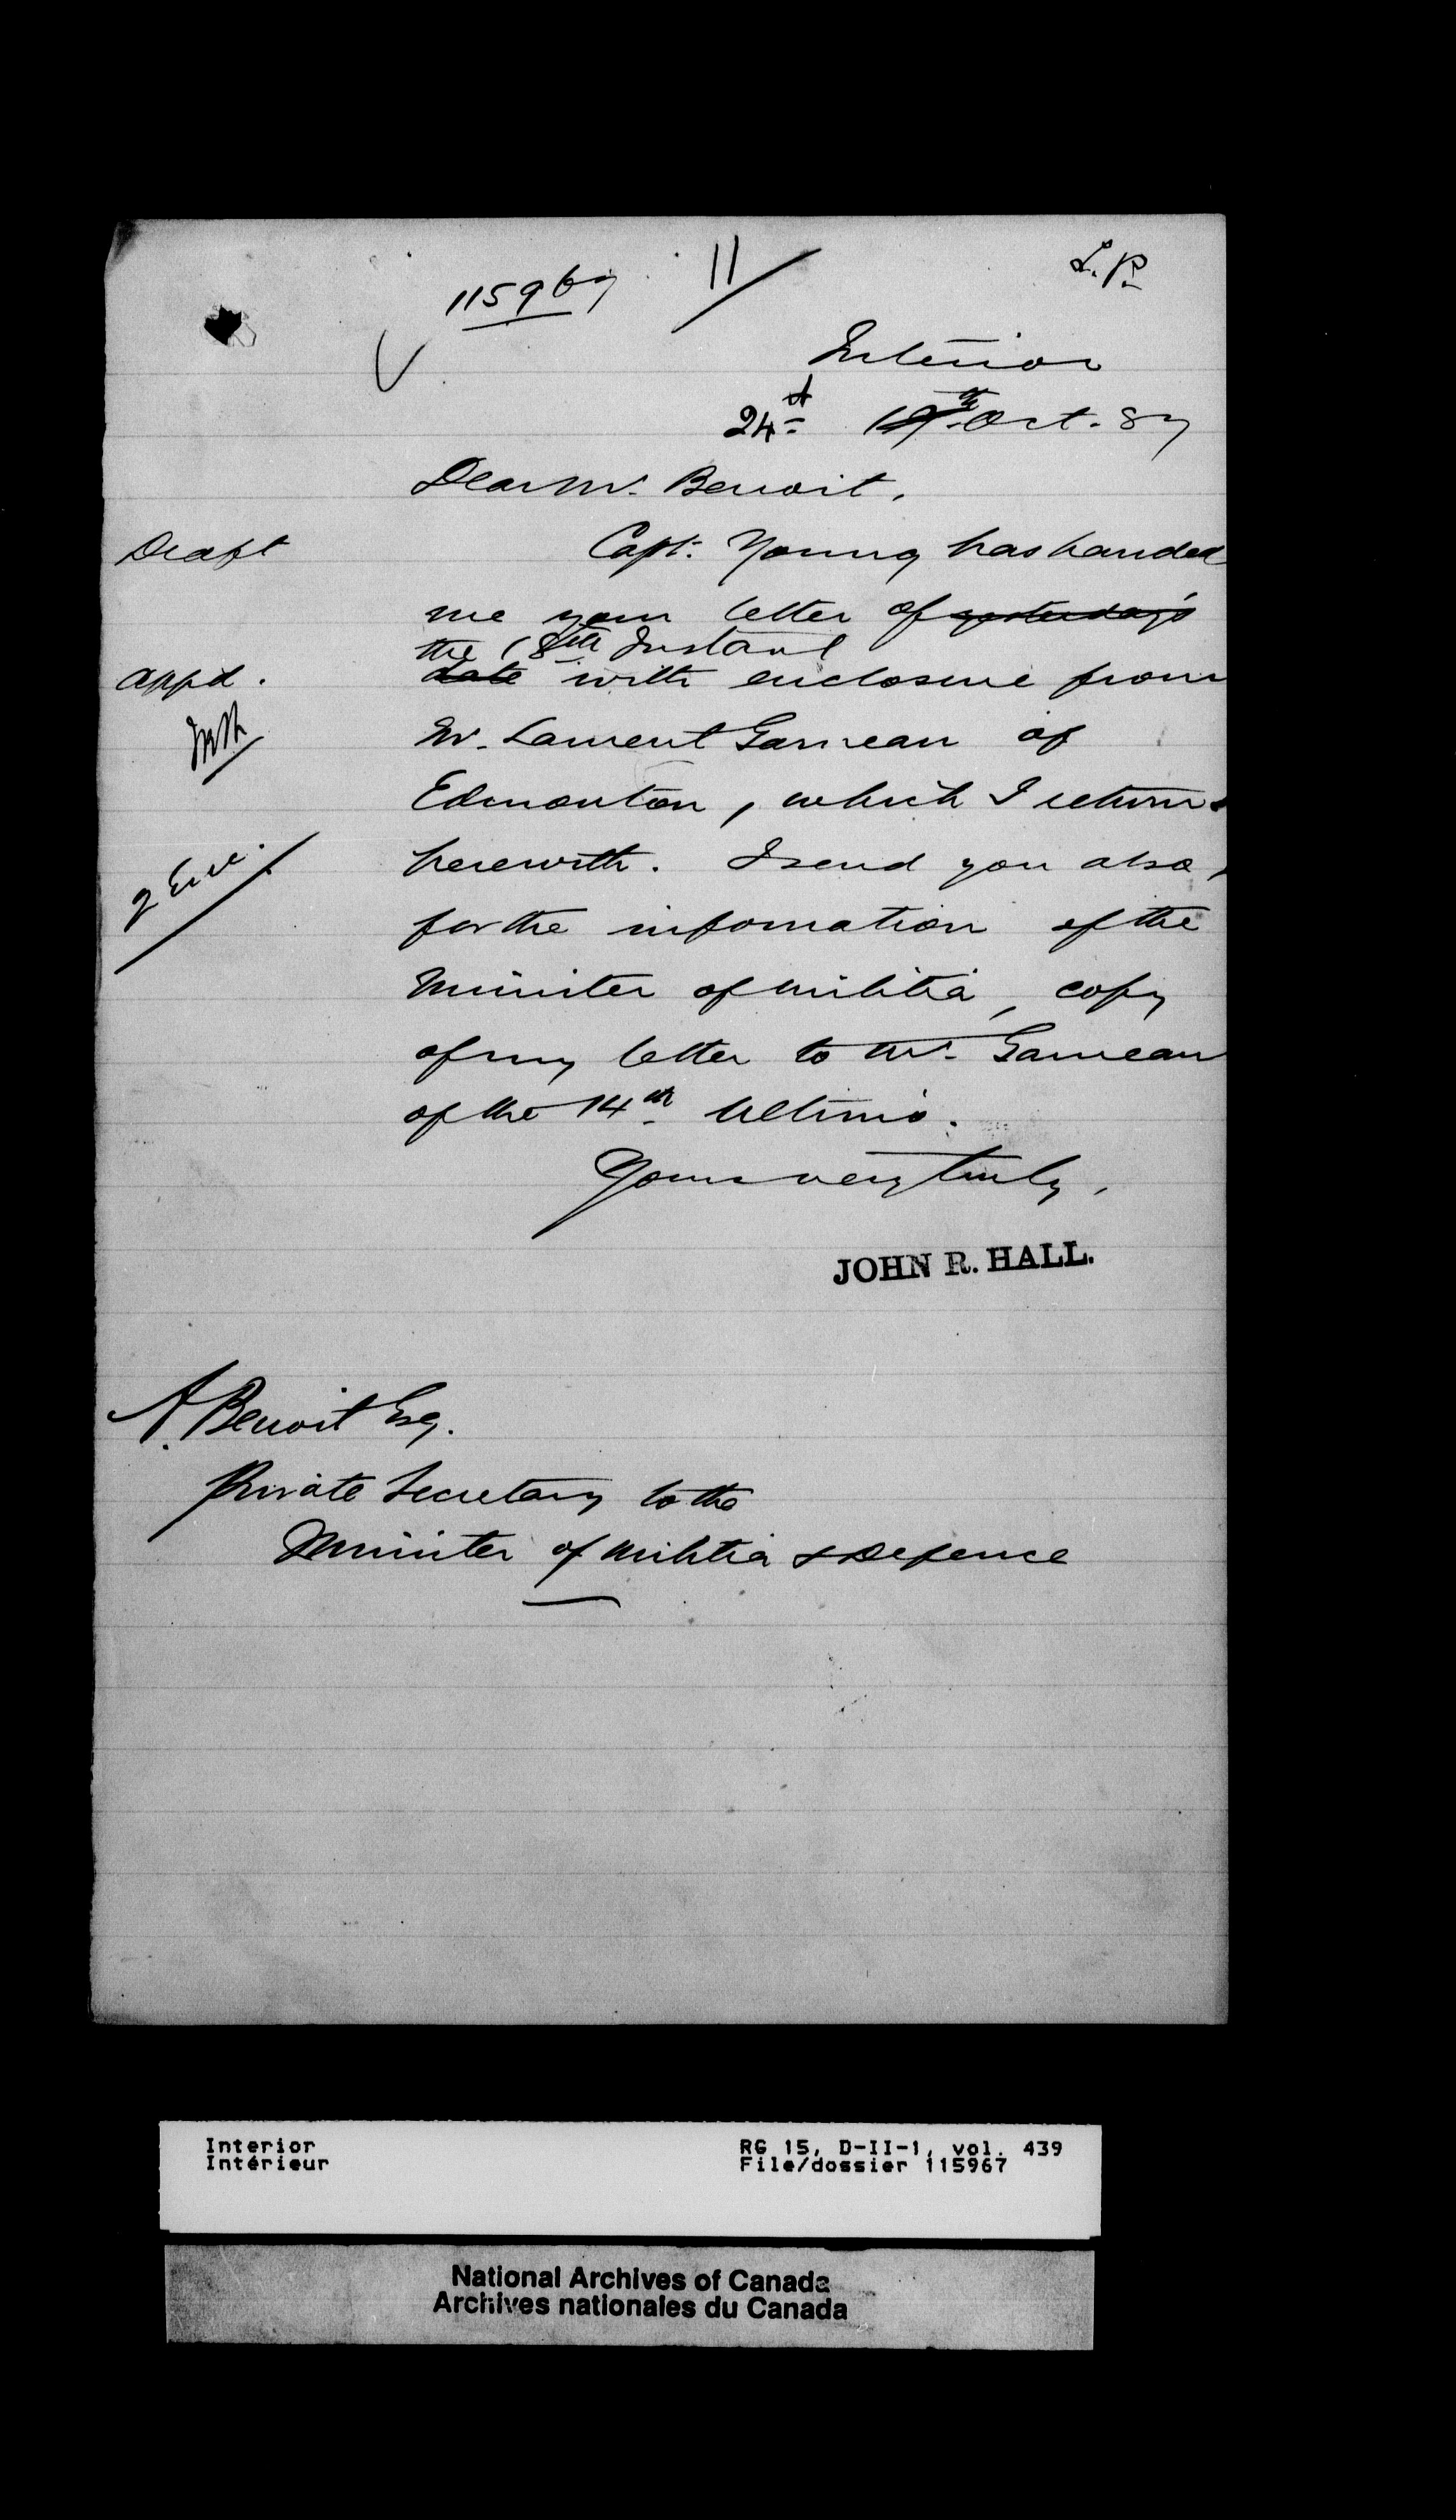 115967 11 L.R.
Interior
24th 19th Oct. 87
Dear Mr. Benoit,
Draft
Capt. Young has handed
me your letter of yesterday's
the 18th Instant
appd.
date with enclosure from
Mr. Laurent Garneau of
Edmonton, which I return
2 Enc.
herewith. I send you also,
for the information of the
Minister of Militia, copy
of my letter to Mr. Garneau
of the 14th Ultimo.
Yours very truly,
JOHN R. HALL.
A. Benoit Esq.
Private Secretary to the
Minister of Militia & Defence
Interior
Intérieur
RG 15, D-II-1, vol. 439
File/dossier 115967
National Archives of Canada
Archives nationales du Canada